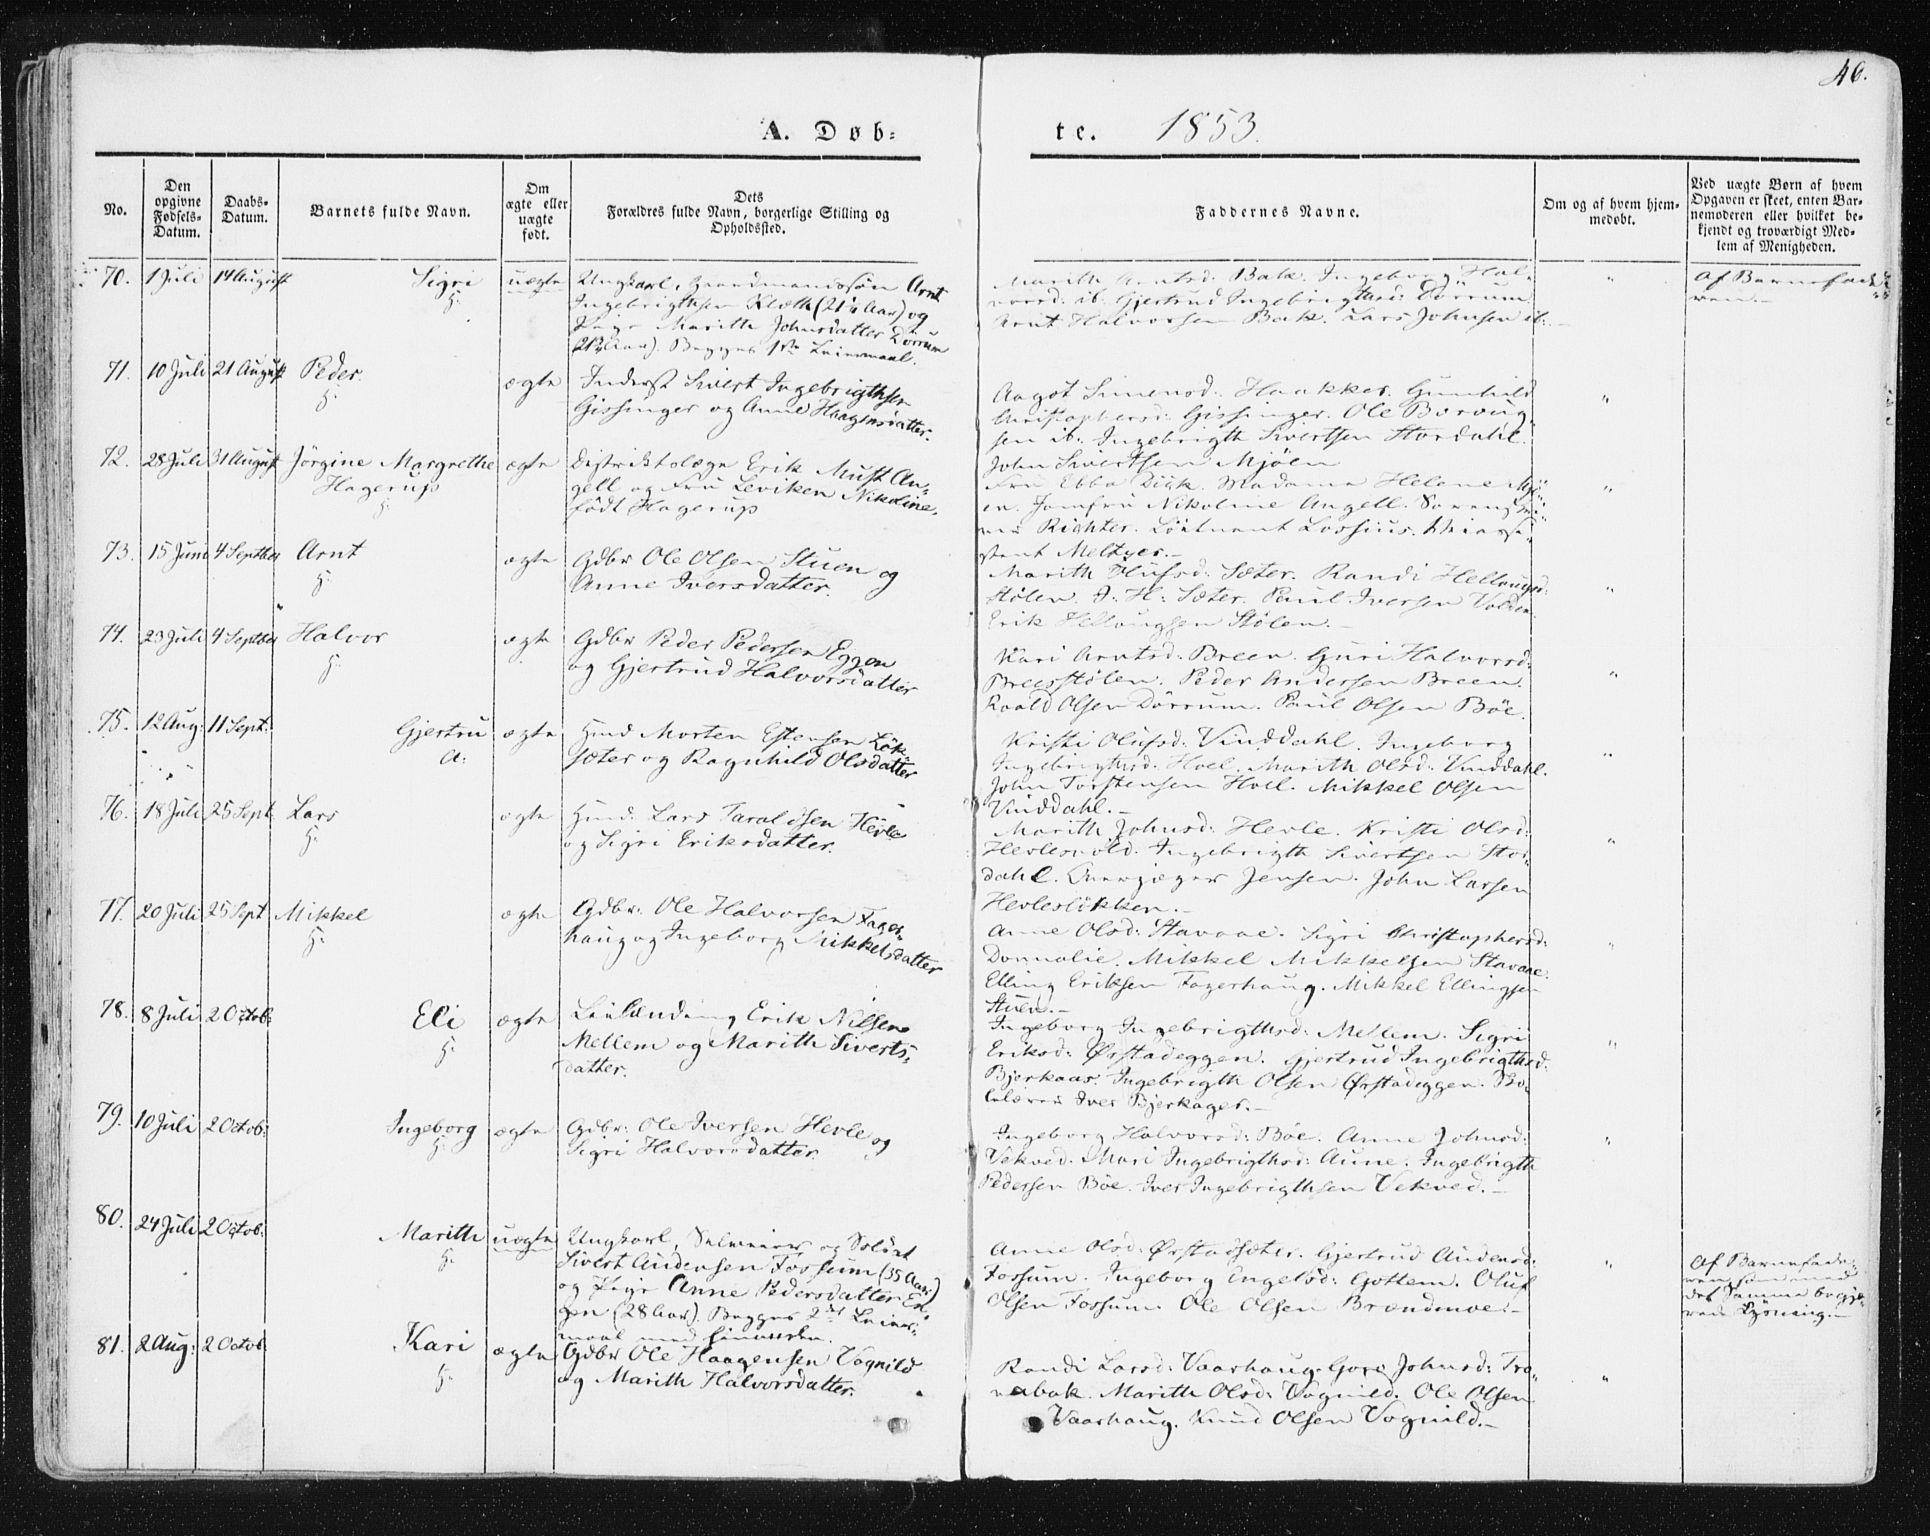 46.
A. Døb-
te. 1853.
No.
Den opgivne Fødsels-Datum.
Daabs-Datum.
Barnets fulde Navn.
Om ægte eller uægte født.
Dets Forældres fulde Navn, borgerlige Stilling og Opholdssted.
Faddernes Navne.
Om og af hvem hjem-medøbt.
Ved uægte Børn af hvem Opgaven er skeet, enten Bar-nemoderen eller hvilket be-kjendt og troværdigt Med-lem af Menigheden.
70. 1 Juli 14 August Sigri uægte Ungkarl, Gaardmandssøn Arnt
H:
Ingebrigthsen Kleth (21 ½ Aar) og
Pige Marith Johnsdatter Dörrum
Aar). Begges 1ste Leiermaal.
Marith Arntsd: Bak. Ingeborg Hal-
vorsd. ib. Gjertrud Ingebrigthsd: Dörrum.
Arnt Halvorsen Bak. Lars Johnsen ib:
"
Af Barnefade-
ren.-
71. 10 Juli 21 August Peder. ægte Inderst Sivert Ingebrigthsen
H:
Gissinger og Anne Haagensdatter.
Aagot Simensd: Haakker. Gunhild
Christophersd: Gissinger. Ole
sen ib: Ingebrigth Sivertsen Stordahl.
John Sivertsen Mjöen
"
72. 28 Juli 31 August Jörgine Margrethe ægte Distriktslæge Erik Must An-
Hagerup
H:
gell og Fru Leviken Nikoline,
født Hagerup
Fru Ebba Dick. Madame Helene Mjö-
en. Jomfru Nikoline Angell.
Richter. Löitnant Lossius.
Meltzer.-
"
73. 15 Juni 4 Septbr Arnt ægte Gdbr Ole Olsen Stuen og
H:
Anne Iversdatter.
Marith Olufsd: Sæter. Randi Hellaugsd:
Stölen. J: H: Sæter. Paul Iversen Volden.
Erik Hellaugsen Stölen.-
"
74. 23 Juli 4 Septbr Halvor ægte Gdbr Peder Pedersen Eggen
H:
og Gjertrud Halvorsdatter
Kari Arntsd: Breen. Guri Halvorsd:
Breesstölen. Peder Andersen Breen.
Roald Olsen Dörrum. Paul Olsen Böe.
"
75. 12 Aug: 11 Sept: Gjertru ægte Hmd Morten Estensen Lök-
A:
sæter og Ragnhild Olsdatter
Kristi Olufsd: Vinddahl. Ingeborg
Ingebrigthsd: Hoel. Marith Olsd: Vinddahl.
John Torstensen Hoel. Mikkel Olsen
Vinddahl.-
"
76. 18 Juli 25 Sept. Lars ægte Hmd: Lars Taraldsen Hevle
H:
og Sigri Eriksdatter.
Marith Johnsd: Hevle. Kristi Olsd:
Hevlesvold. Ingebrigth Sivertsen Stor-
dahl. Jensen. John Larsen
Hevleslökken.-
"
77. 20 Juli 25 Sept Mikkel ægte Gdbr: Ole Halvorsen Fager-
H:
haug og Ingeborg Mikkelsdatter
Anne Olsd: Stavaae. Sigri Christophersd:
Donnalie. Mikkel Mikkelsen Stavaae.
Elling Eriksen Fagerhaug. Mikkel Ellingsen
Stuen.-
"
78. 8 Juli 2 Octob: Eli ægte Leilænding Erik Nilsen
H:
Mellem og Marith Siverts-
datter.
Ingeborg Ingebrigthsd: Mellem. Sigri
Eriksd: Ørstadeggen. Gjertrud Ingebrigthsd.
Bjerkaas. Ingebrigth Olsen Ørstadeggen. Sko-
lelærer Iver Bjerkager.-
"
79. 10 Juli 2 Octob: Ingeborg ægte Gdbr: Ole Iversen Hevle og
H:
Sigri Halvorsdatter.
Ingeborg Halvorsd: Böe. Anne Johnsd:
Vekved. Mari Ingebrigthsd: Aune. Ingebrigth
Pedersen Böe. Iver Ingebrigthsen Vekved.-
"
80. 24 Juli 2 Octob: Marith uægte Ungkarl, Selveier og Soldat
H:
Sivert Audensen Fossum (35 Aar)
og Pige Anne Pedersdatter
gen (28 Aar). Begges 2det Leier-
maal med hinanden.
Anne Olsd: Ørstadsæter. Gjertrud Audensd:
Fossum. Ingeborg Engelsd: Gottem. Oluf
Olsen Fossum. Ole Olsen Brandmoe.-
"
Af Barnefade-
ren som med
det Samme begje-
rede Lysning.-
81. 2 Aug: 2 Octob. Kari ægte Gdbr Ole Haagensen Vognild
H:
og Marith Halvorsdatter.
Randi Larsd: Vaarhaug. Goro Johnsd: Tro-
nesbak. Marith Olsd: Vognild. Ole Olsen
Vaarhaug. Knud Olsen Vognild.-
"